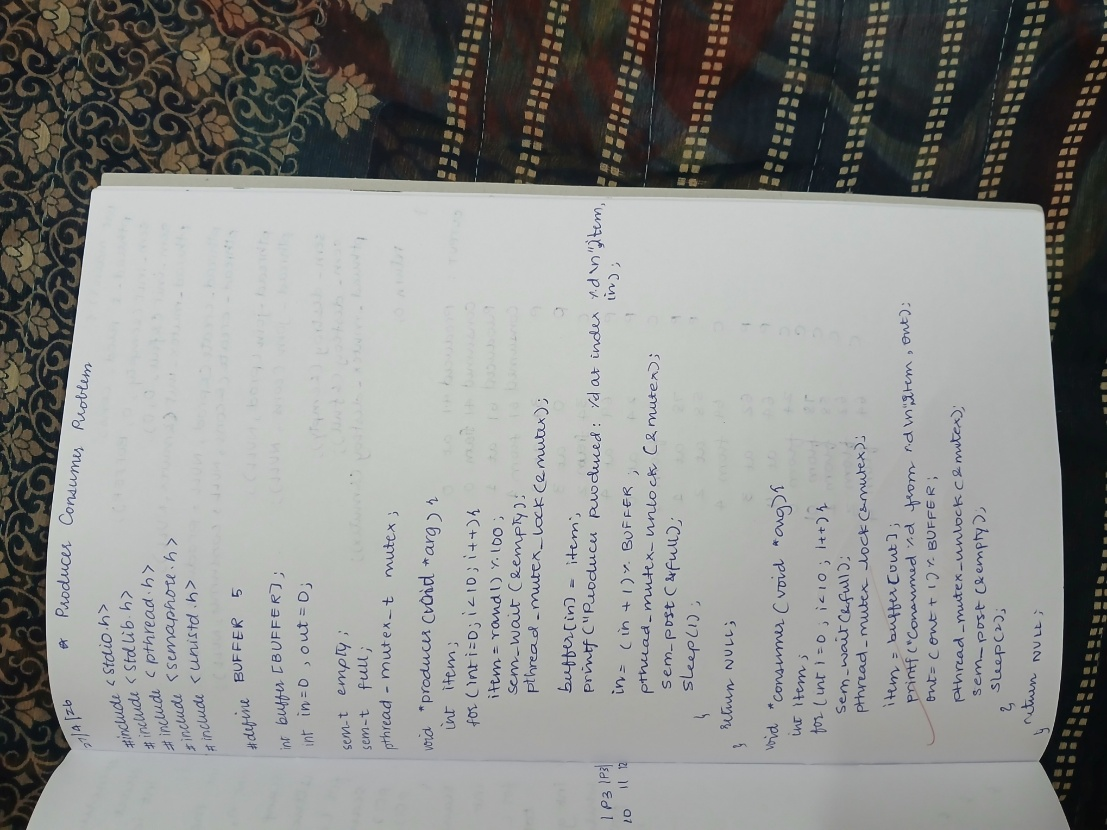 * Producer Consumer Problem
#include <stdio.h>
#include <stdlib.h>
#include <pthread.h>
#include <semaphore.h>
#include <unistd.h>
#define BUFFER 5
int buffer [BUFFER];
int in=0, out=0;
sem-t empty;
sem-t full;
pthread-mutex-t mutex;
void *producer (void *arg) {
int item;
for (int i=0; i<10; i++){
item=rand() % 100;
sem-wait (&empty);
pthread_mutex_lock(&mutex);
buffer[in] = item;
printf("Producer produced: %d at index %d\n", item,
in);
in = (in + 1) % BUFFER;
pthread_mutex-unlock (&mutex);
sem-post (&full);
sleep(1);
}
return NULL;
}
void *consumer (void *arg){
int item;
for (int i=0; i<10; i++){
sem-wait(&full);
pthread-mutex-lock(&mutex);
item = buffer[out];
printf("Consumed %d from %d\n", item, out);
out=(out+1)% BUFFER;
pthread-mutex-unlock(&mutex);
sem-post(&empty);
sleep(2);
}
return NULL;
}
| P3 | P3 |
10 11 12